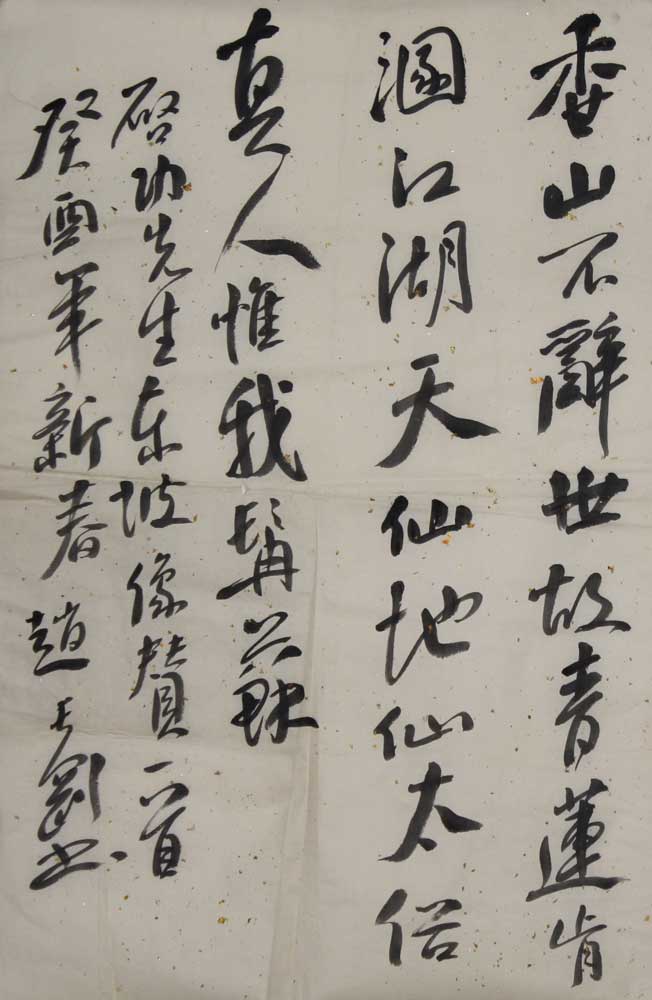 香山不辭世故青蓮肯
溷江湖天仙地仙太俗
真人惟我髯蘇
啓功先生东坡像賛一首
癸酉年新春趙长剛书